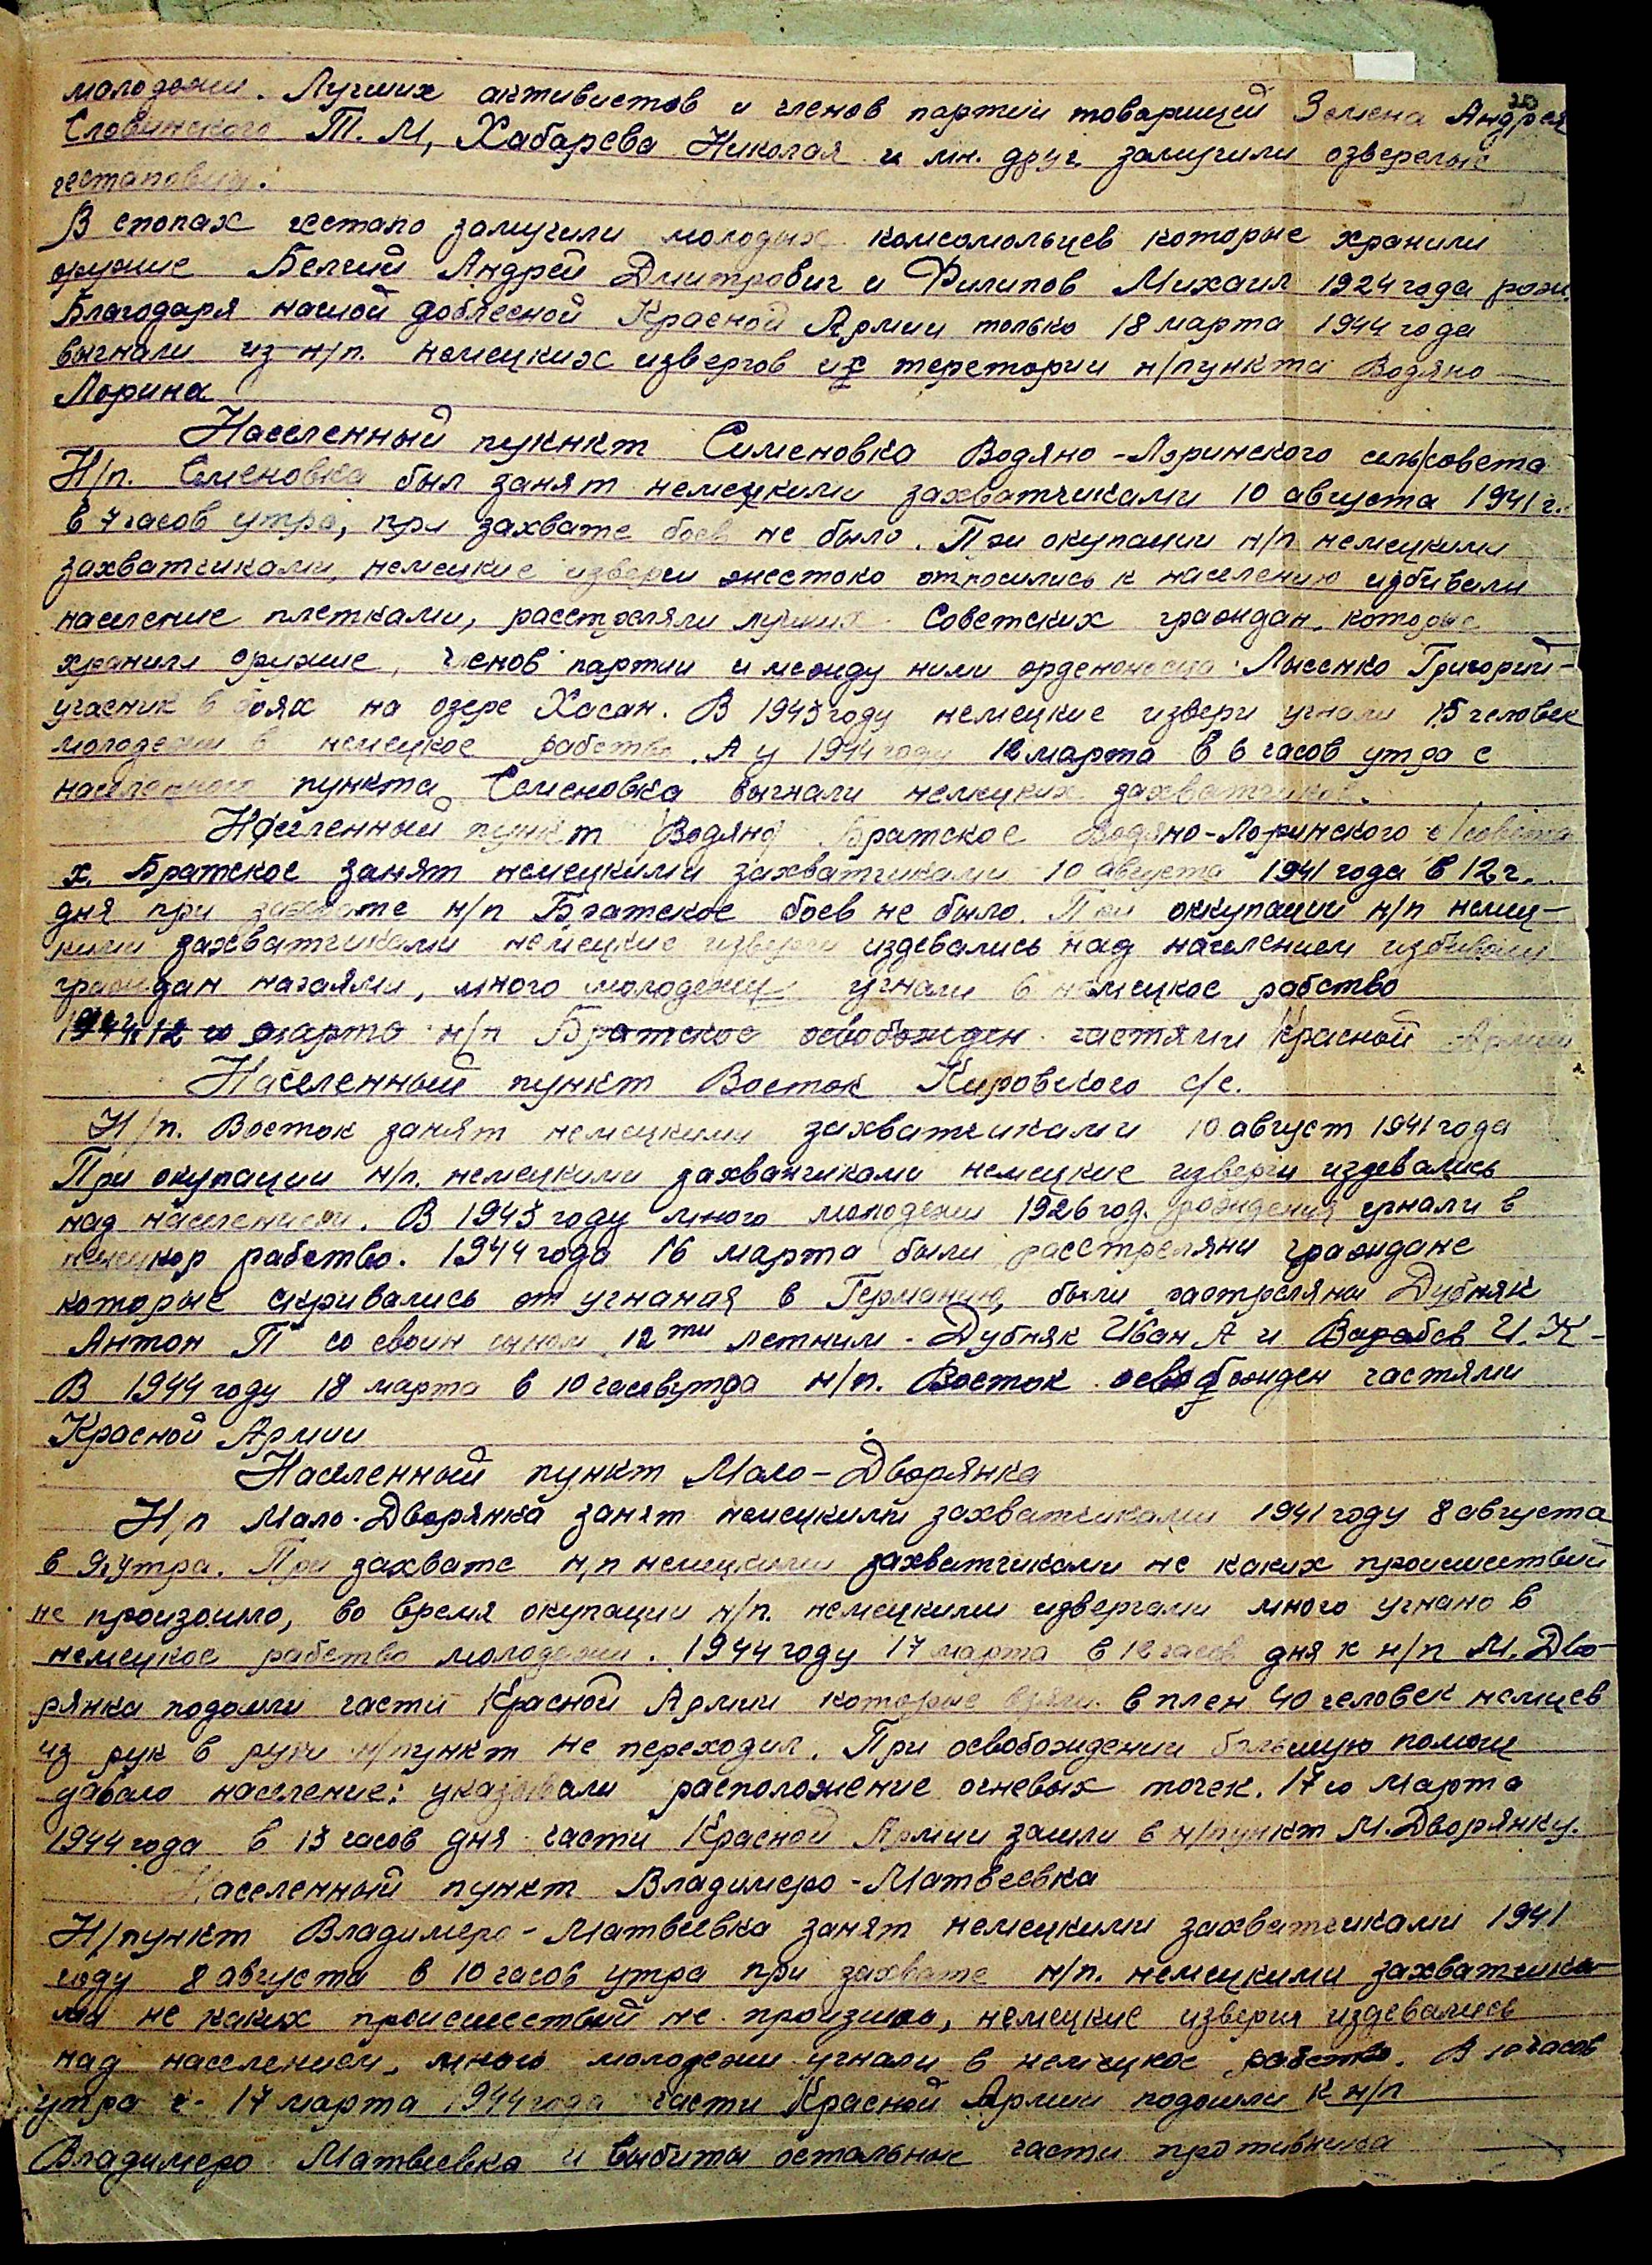 20
молодежи. Лучших активистов и членов партии товарищей Земена Андрея
Словинского Т. М, Хабарева Николая и мн. друг. замучили озверелые
гестаповцы.
В стопах гестапо замучили молодых комсомольцев которые хранили
оружие Белий Андрей Дмитрович и Филипов Михаил 1924 года рожд.
Благодаря нашой доблесной Красной Армии только 18 марта 1944 года
выгнали из н/п. немецких извергов из теретории н/пункта Водяно
Лорина
Населенный пункнт Сименовка Водяно-Лоринского сель/совета
Н/п. Семеновка был занят немецкими захватчиками 10 августа 1941 г.
в 7 часов утра, при захвате боев не было. При окупации н/п немецкими
захватчиками, немецкие изверги жестоко относились к населению избивали
население плетками, расстреляли лучших Советских граждан, которые
хранили оружие, членов партии и между ними орденоносца Лысенко Григорий-
учасник в боях на озере Хасан. В 1943 году немецкие извери угнали 15 человек
молодежи в немецкое рабство. А у 1944 году 12 марта в 6 часов утра с
населенного пункта Семеновка выгнали немецких захватчиков.
Населенный пункт Водяно Братское Водяно-Лоринского с/совета
х. Братское занят немецкими захватчиками 10 августа 1941 года в 12 г.
дня при захвате н/п Братское боев не было. При оккупации н/п немец-
кими захватчиками немецкие изверги издевались над населением избивали
граждан нагаями, много молодежи угнали в немецкое рабство
1944 12 го марта н/п Братское освобожден частями Красной Армии
Населенный пункт Восток Кировского с/с.
Н/п. Восток занят немецкими захватчиками 10 август 1941 года
При окупации н/п. немецкими захванчиками немецкие изверги издевались
над населением. В 1943 году много молодежи 1926 год. рождения угнали в
немецкор рабство. 1944 года 16 марта были расстреляни граждане
которые скривались от угнания в Германию, были растреляны Дубняк
Антон П со своин сином 12 ти летним. Дубняк Иван А и Варабев И. К-
В 1944 году 18 марта в 10 часов утра н/п. Восток освобожден частями
Красной Армии
Населенный пункт Мало-Дворянка
Н/п Мало-Дворянка занят немецкими захватчиками 1941 году 8 августа
в 9 г утра. При захвате н/п немецкими захватчиками не каких происшетвий
не произошло, во время окупации н/п. немецкими извергами много угнано в
немецкое рабство молодежи. 1944 году 17 марта в 12 часов дня к н/п М. Дво-
рянка подошли части Красной Армии которые взяли в плен 40 человек немцев
из рук в руки н/пункт не переходил. При освобождении большую помощ
давало население: указывали расположение огневых точек. 17 го Марта
1944 года в 13 часов дня части Красной Армии зашли в н/пункт М. Дворянку.
Населенный пункт Владимеро-Матвеевка
Н/пункт Владимеро-Матвеевка занят немецкими захватчиками 1941
году 8 августа в 10 часов утра при захвате н/п. немецкими захватчика-
ми не каких происшествий не произшло, немецкие изверги издевались
над населением, много молодежи угнали в немецкое рабство. В 10 часов
утра 17 марта 1944 года части Красной Армии подошли к н/п
Владимеро Матвеевка и выбиты остальные части противника